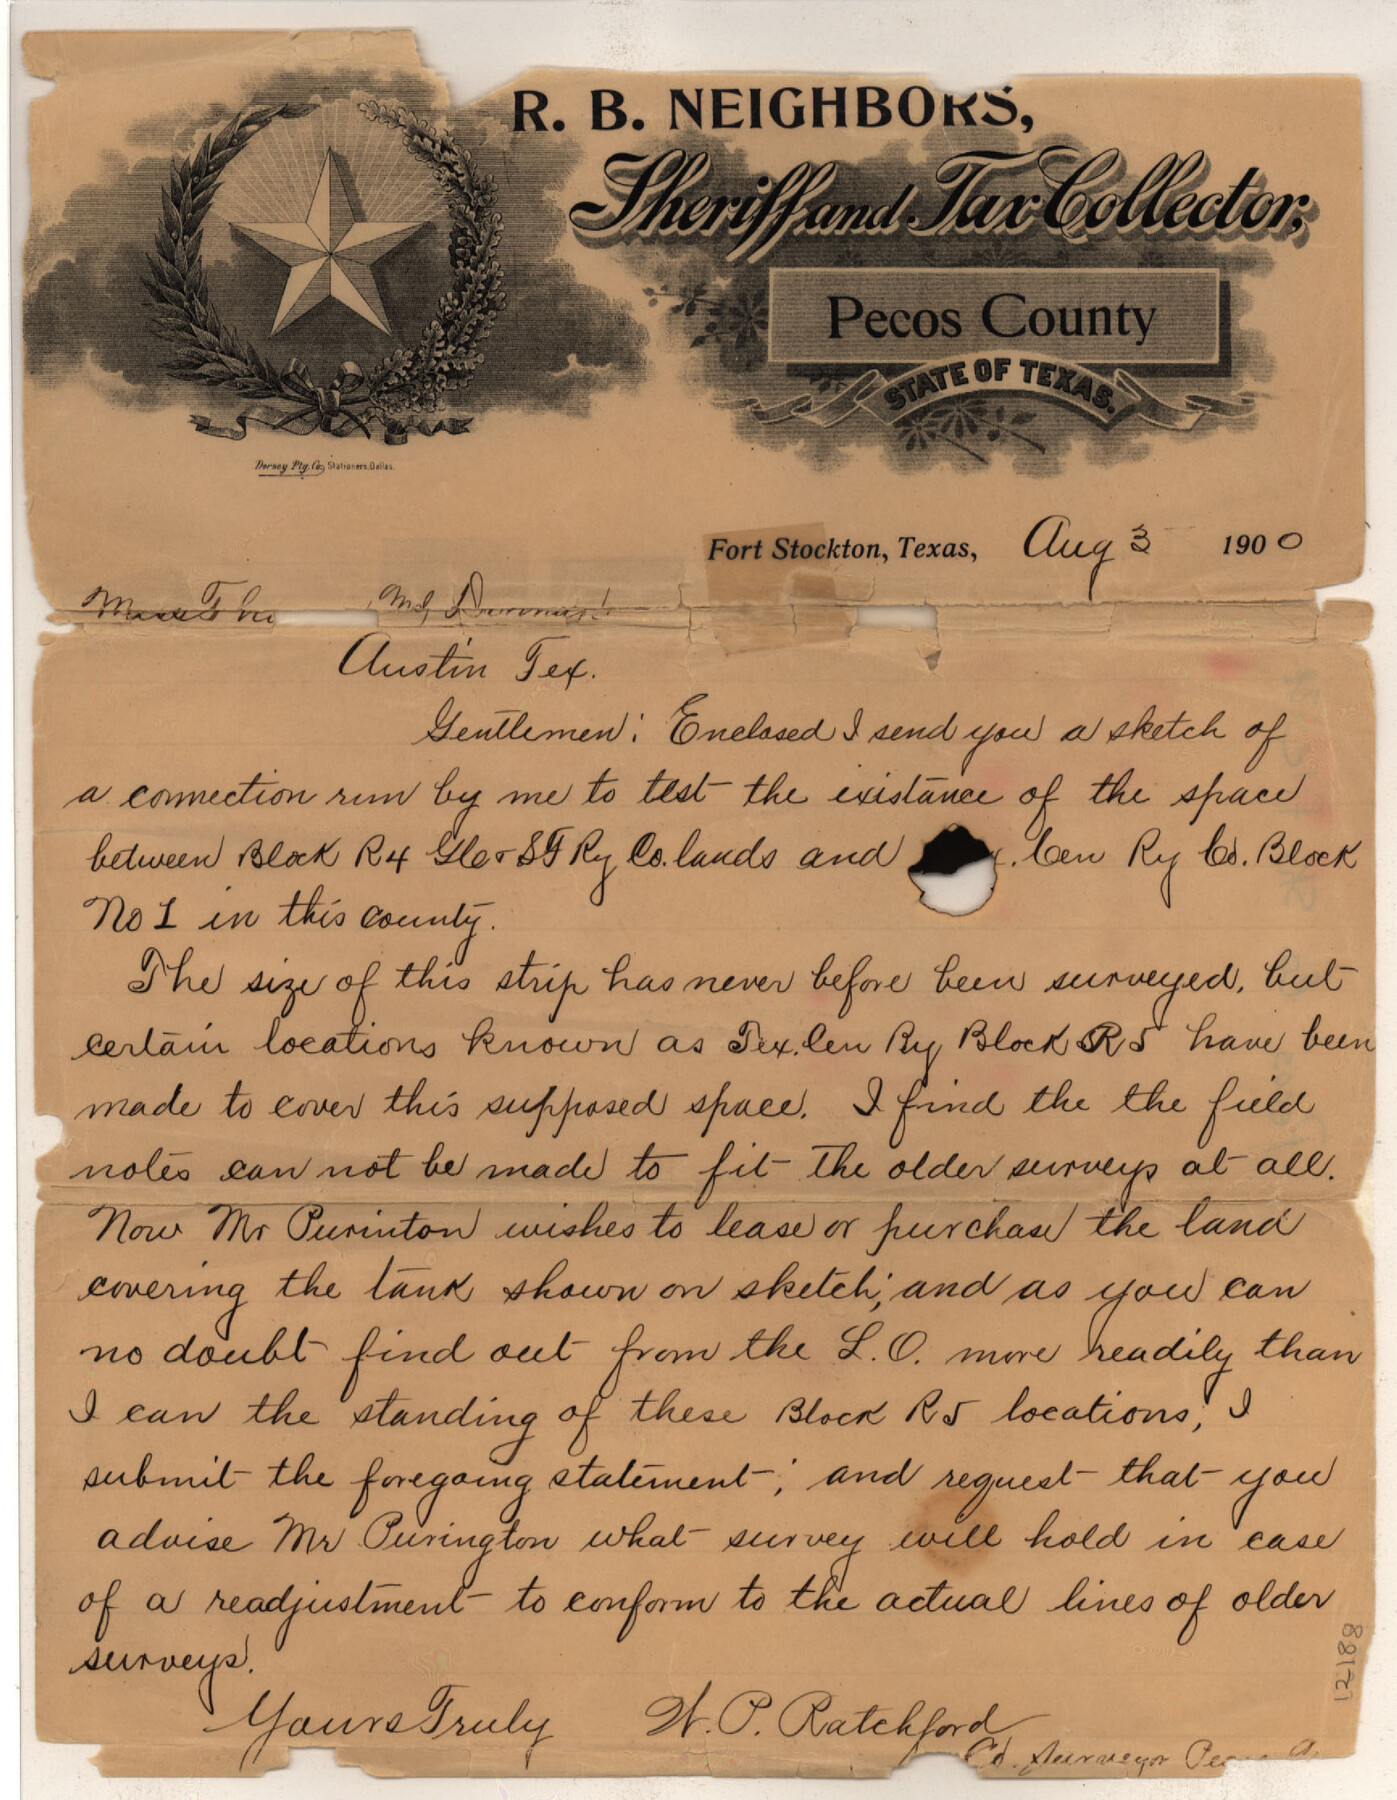 R. B. NEIGHBORS,
Sheriff and Tax Collector,
Pecos County
STATE OF TEXAS.
Dorsey Ptg. Co., Stationers, Dallas.
Fort Stockton, Texas, Aug 3 1900
Austin Tex.
Gentlemen: Enclosed I send you a sketch of
a connection run by me to test the existance of the space
between Block R4 GC & SF Ry Co. lands and . Cen Ry Co. Block
No 1 in this county.
The size of this strip has never before been surveyed, but
certain locations known as Tex. Cen Ry Block R5 have been
made to cover this supposed space. I find the the field
notes can not be made to fit the older surveys at all.
Now Mr Purinton wishes to lease or purchase the land
covering the tank shown on sketch; and as you can
no doubt find out from the L. O. more readily than
I can the standing of these Block R5 locations, I
submit the foregoing statement; and request that you
advise Mr Purington what survey will hold in case
of a readjustment to conform to the actual lines of older
surveys.
Yours Truly W. P. Ratchford
Co. Surveyor
12188